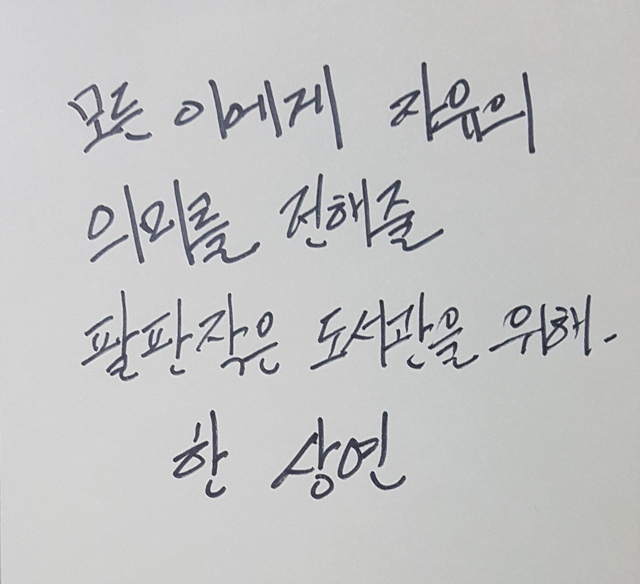 모든 이에게 자유의
의미를 전해줄
팔판작은 도서관을 위해.
한 상연